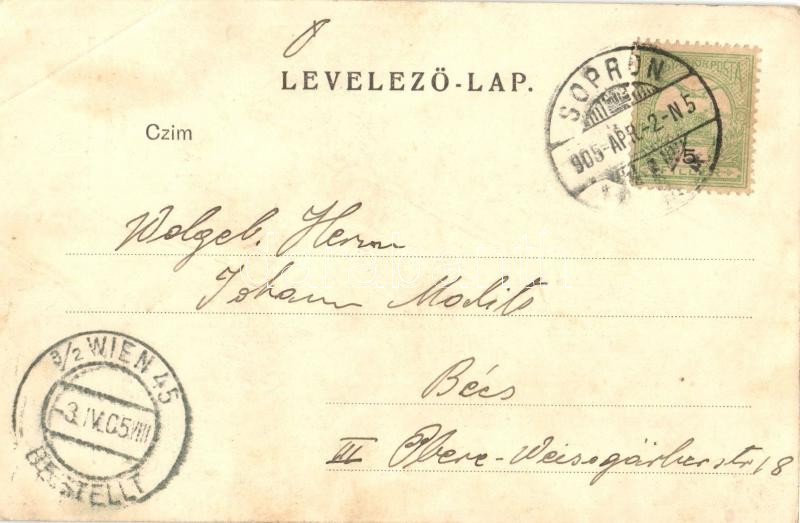 LEVELEZŐ-LAP.
MAGYAR POSTA
SOPRON
905-APR.-2-N5
5
Czim
Wolgeb. Herrn
Johann Modits
Bécs
III Obere-Weissgärberstr 18
3/2 WIEN 45
-3.IV.05.VIII
BESTELLT